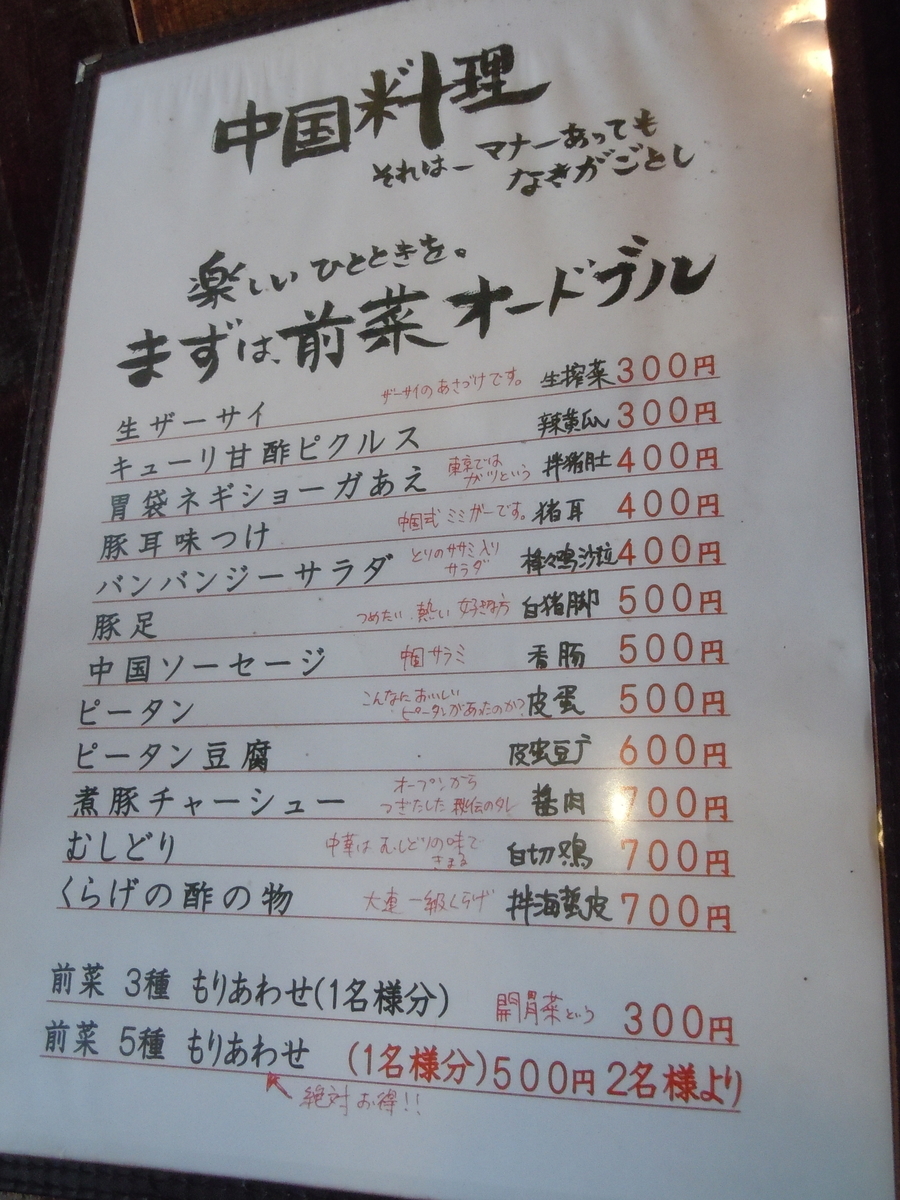 中国料理
それは一マナーあっても
なきがごとし
楽しいひとときを。
まずは、前菜オードブル
生ザーサイ ザーサイのあさづけです。 生搾菜 300円
キューリ甘酢ピクルス 辣黄瓜 300円
胃袋ネギショーガあえ 東京では ガツという 拌猪肚 400円
豚耳味つけ 中国式ミミガーです。 猪耳 400円
バンバンジーサラダ とりのササミ入り サラダ 棒々鶏沙拉 400円
豚足 つめたい 熱い 好き好方 白猪脚 500円
中国ソーセージ 中国サラミ 香腸 500円
ピータン こんなにおいしい ピータンがあったのか? 皮蛋 500円
ピータン豆腐 皮蛋豆腐 600円
煮豚チャーシュー オープンから つぎたした 秘伝のタレ 醤肉 700円
むしどり 中華はむしどりの味で きまる 白切鶏 700円
くらげの酢の物 大連一級くらげ 拌海蜇皮 700円
前菜 3種 もりあわせ(1名様分) 開胃菜という 300円
前菜 5種 もりあわせ (1名様分)500円 2名様より
絶対お得!!